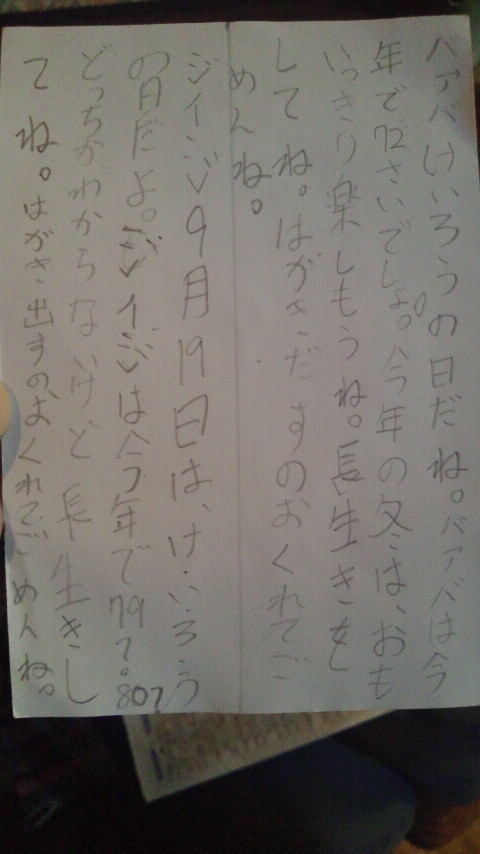 バアバけいろうの日だね。バアバは今
年で72さいでしょ。今年の冬は、おも
いっきり楽しもうね。長生きを
してね。はがきだすのおくれてご
めんね。
ジイジ9月19日は、けいろう
の日だよ。ジイジは今年で79?。80?
どっちかわからないけど長生きし
てね。はがき出すのおくれてごめんね。